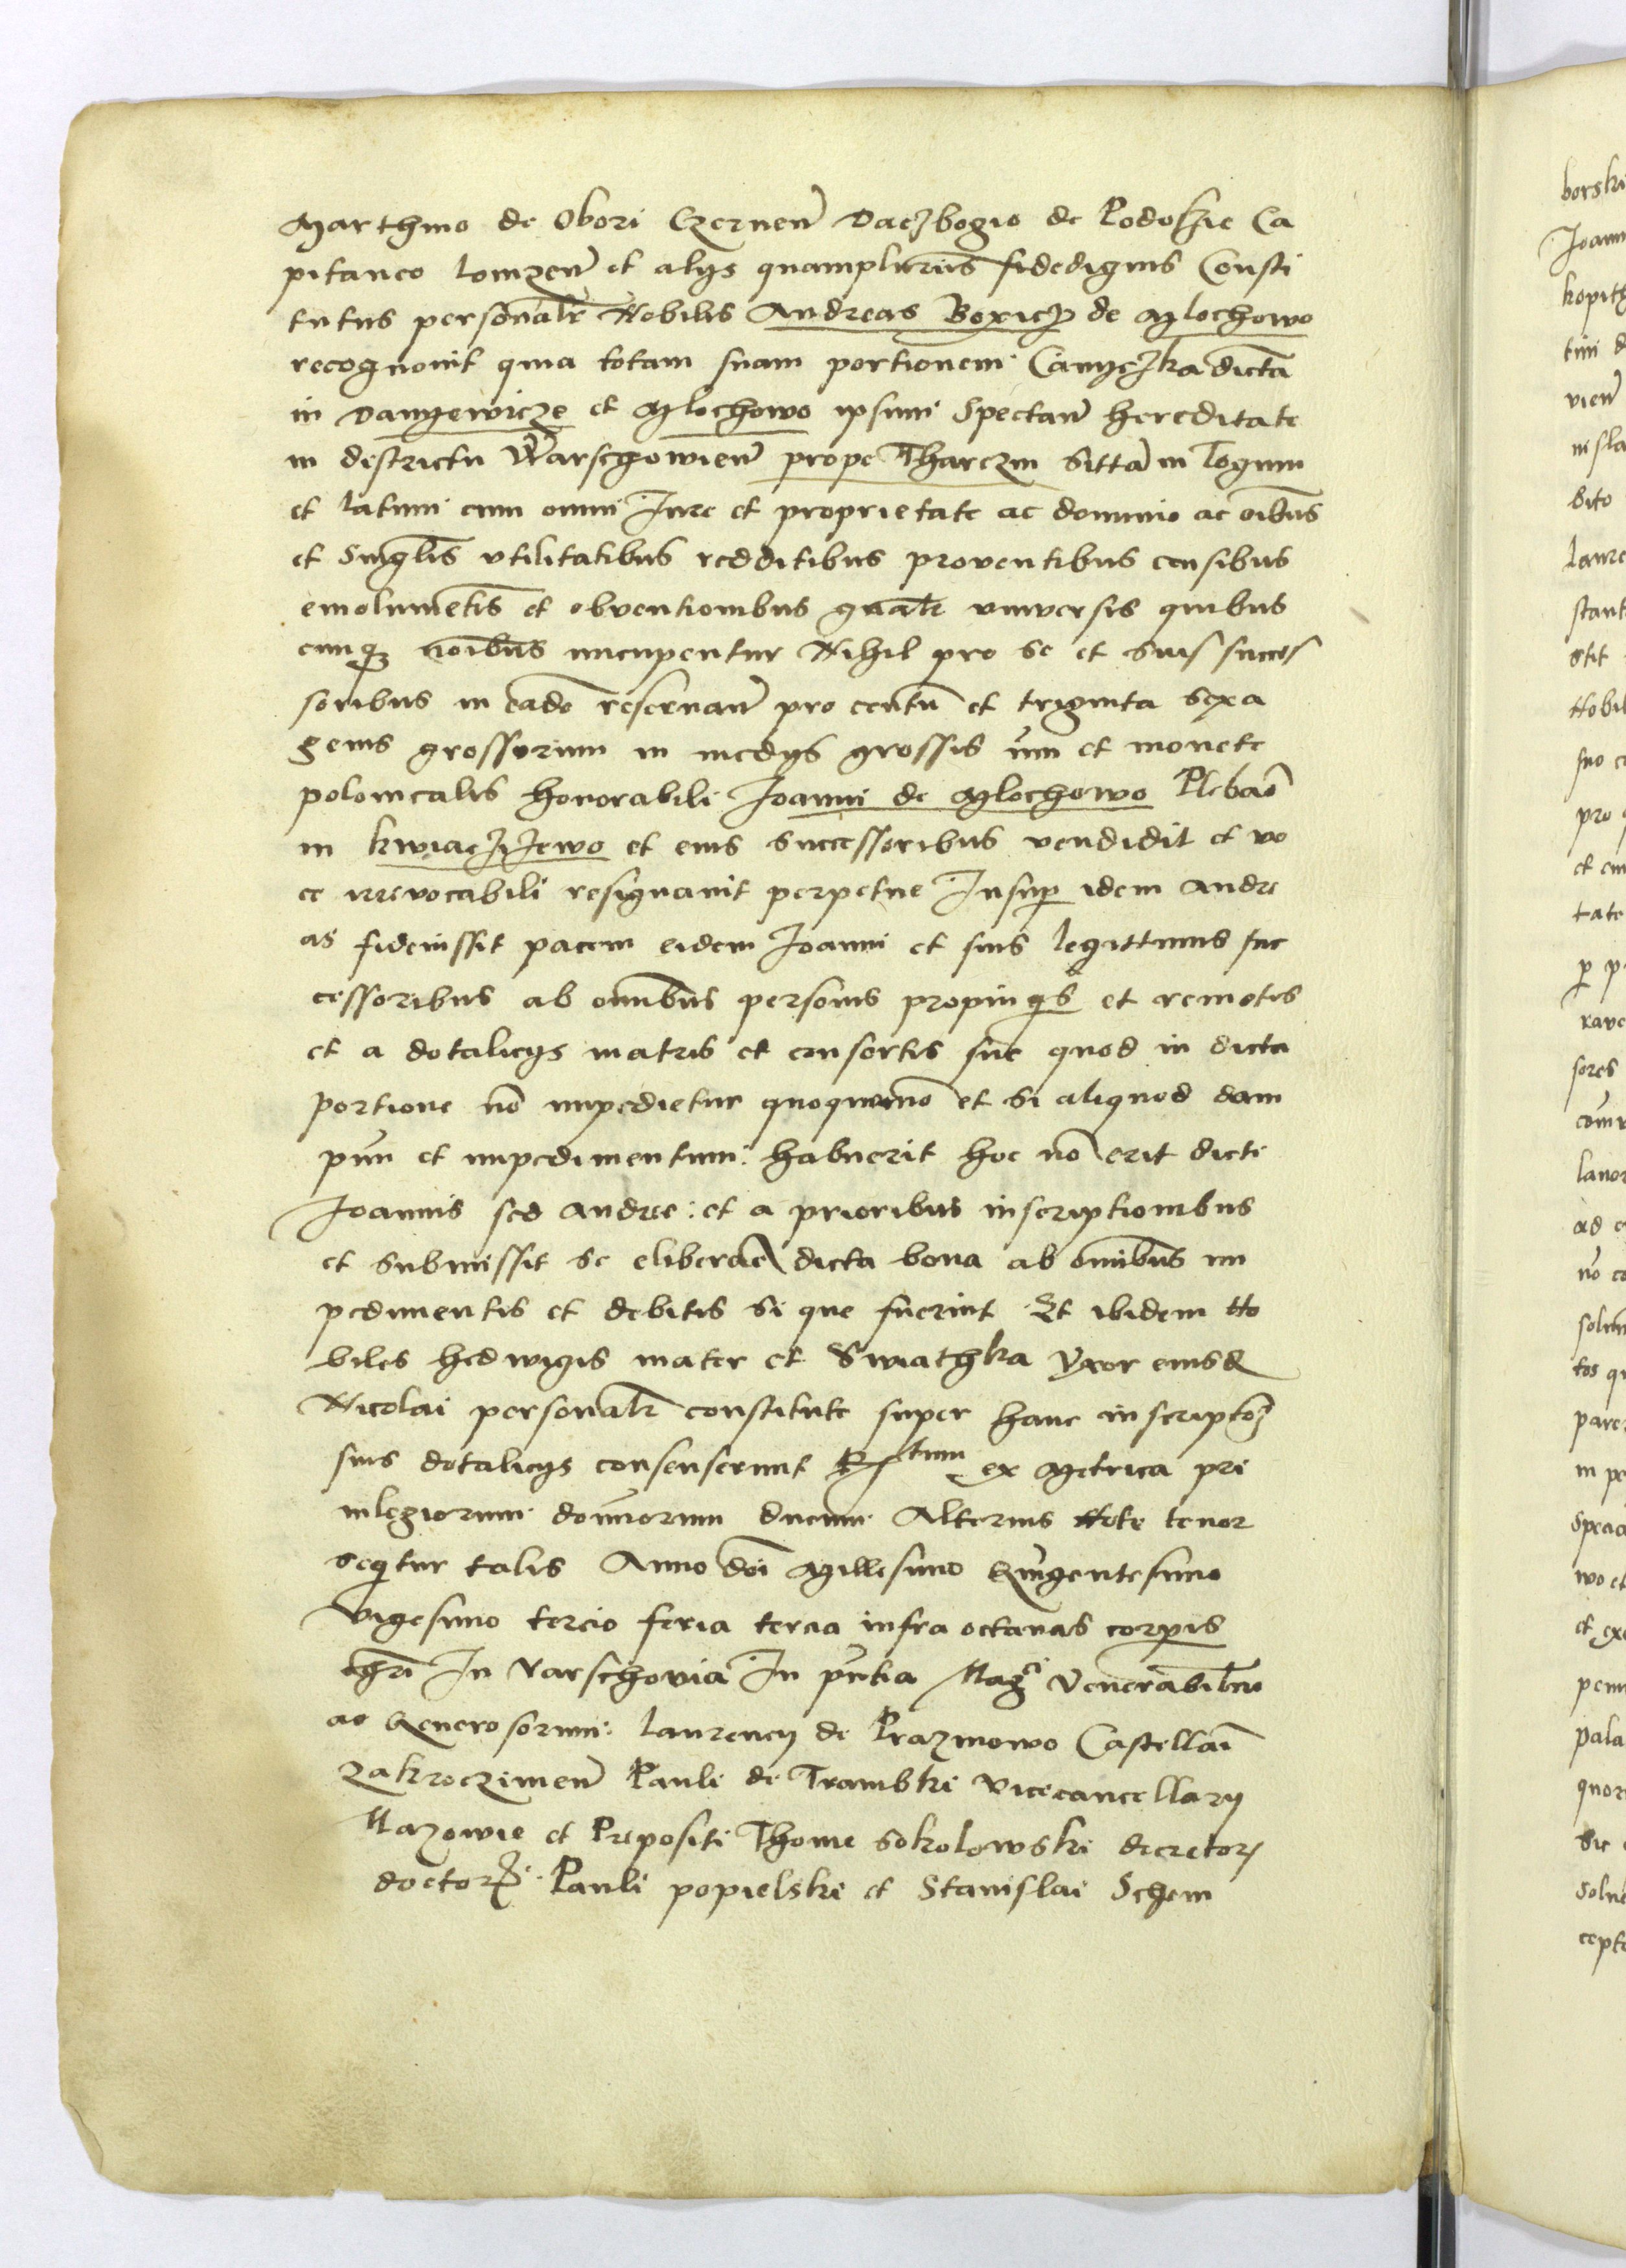 Marthino de Obori Czernen̄ Daczbogio de Podoszie Ca
pitaneo lomzen̄ et alijs quampluribūs fidedignis Consti
tutus personalr̄ Nobilis Andreas Boxicz de Mlochowo
recognovit quia totam suam portionem Camyczka dictā
in Danyewicze et Mlochowo ipsum Spectan̄ hereditate
in districtu Warschowien̄ prope Tharczin Sittā in Lōgum
et latum cum omni Jure et proprietate ac dominio ac oībus
et Singlīs vtilitatibus redditibus proventibus censibus
emolumētis et obventionibus gnālr vniversis quibus
cunqȝ noībus nuncupentur Nihil pro se et suis succes
soribus in eadē reservan̄ pro centū et triginta sexa
genis grossorum in medijs grossis nūi et monete
polonicalis honorabili Joanni de Mlochowo Plebāo
in kwiaczijewo et eius successoribus vendidit et vo
ce irrevocabili resignavit perpetue Insuꝑ idem Andre
as fideiussit pacem eidem Joanni et suis legittimis suc
cessoribus ab omnibūs personis propinqs et remotis
et a dotalicijs matris et consortis sue quod in dicta
portione nō impedietur quoquomō et si aliquod dam
pnū et impedimentum habuerit hoc nō erit dicti
Joannis sed Andree et a prioribus inscriptionibus
et submissit se eliberāe dicta bona ab omnibūs im
pedimentis et debitis si que fuerint Et ibidem No
biles hedwigis mater et Swiathka Vxor eiusd
Nicolai personalr̄ constitute super hanc inscriptōȝ
suis dotalicijs consenserunt Rstum ex Metrica pri
uilegiorum domīorum ducum Alterius Note tenor
seqtur talis Anno dōi Millesimo Quīgentesimo
Vigesimo tercio feria tercia infra octavas corꝑis
chrī In Varschovia In pn̄tia Magcⁱ Venerabiliū
ac Generosorum laurencij de Prazmowo Castellāi
zakroczimen̄ Pauli de Trambki Vicecancellarij
Mazowie et Prepositi Thome Sokolowski decretoꝝ
doctoꝝ Pauli popielski et Stanislai Schem
borski
Joann
kopith
vien̄
nisla
dito
laure
stant
stit
Nobil
suo c
pro
et eiu
tate
sores
lanor
ad
nō co
tos qu
in pe
wo et
et exe
pala
quor
sic
cepte